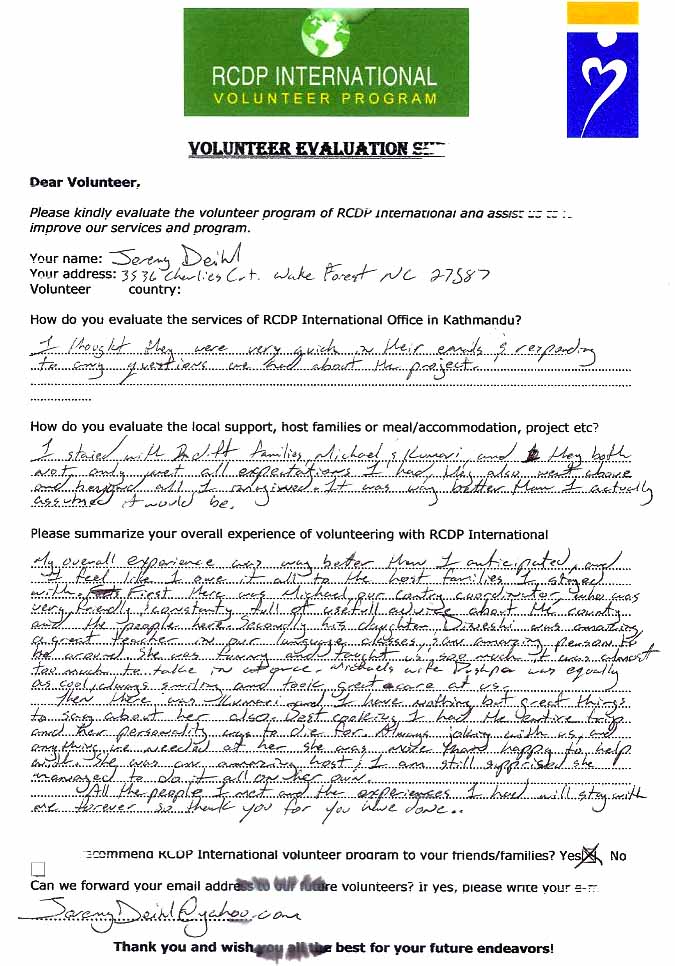 RCDP INTERNATIONAL
VOLUNTEER PROGRAM
VOLUNTEER EVALUATION
Dear Volunteer,
Please kindly evaluate the volunteer program of RCDP International and assist
improve our services and program.
Your name: Jeremy Deihl
Your address: 3536 Charlies Crt. Wake Forest NC 27587
Volunteer country:
How do you evaluate the services of RCDP International Office in Kathmandu?
I thought they were very quick in their emails & responding
to any questions we had about the project.
How do you evaluate the local support, host families or meal/accommodation, project etc?
I staied with 2 diff families, Michael & Kumari, and they both
not only met all expectations I had, they also went above
and beyond all I imagined. It was way better than I actually
assumed it would be.
Please summarize your overall experience of volunteering with RCDP International
My overall experience was way better than I anticipated, and
I feel like I owe it all to the host families I stayed
with. First there was Michael our contry coordinator, who was
very friendly & constantly full of usefull advice about the country
and the people here. Secondly his daughter was amazing
a great teacher in our language classes, & an amazing person to
be around. She was funny and taught us soo much it was almost
too much to take in at once. Michaels wife Pushpa was equally
as cool, always smiling and took great care at us.
Then there was Kumari and I have nothing but great things
to say about her also. Best cooking I had the entire trip
and her personality was to die for. Always joking with us, and
anything we needed at her she was more than happy to help
with. She was an amazing host, I am still supprised she
managed to do it all on her own.
All the people I met and the experiences I had will stay with
me forever so thank you for you have done..
ecommend RCDP International volunteer program to your friends/families? Yes No
Can we forward your email address to our future volunteers? If yes, please write your
JeremyDeihl@yahoo.com
Thank you and wish you all the best for your future endeavors!